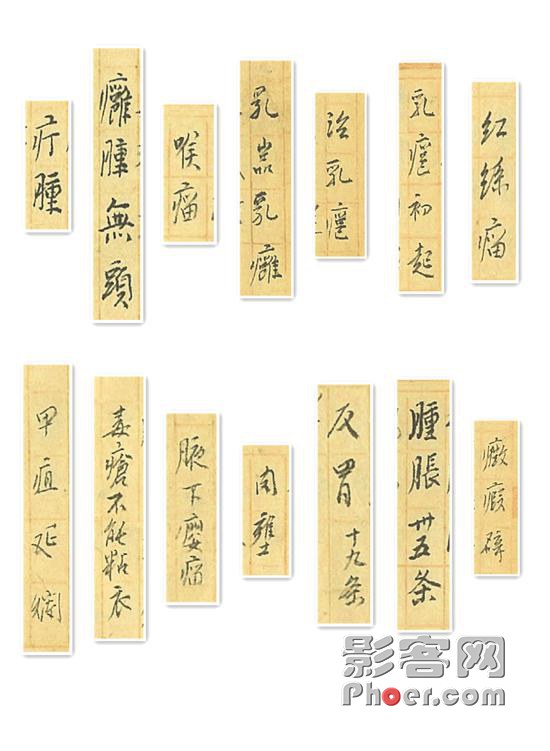 疔腫
癰腫無頭
喉瘤
乳岩乳癰
治乳癰
乳癰初起
红絲瘤
甲疽延爛
毒瘡不能粘衣
腋下癭瘤
肉壅
反胃 十九条
腫脹卅五条
癥瘕癖
影客网
Phoer.com